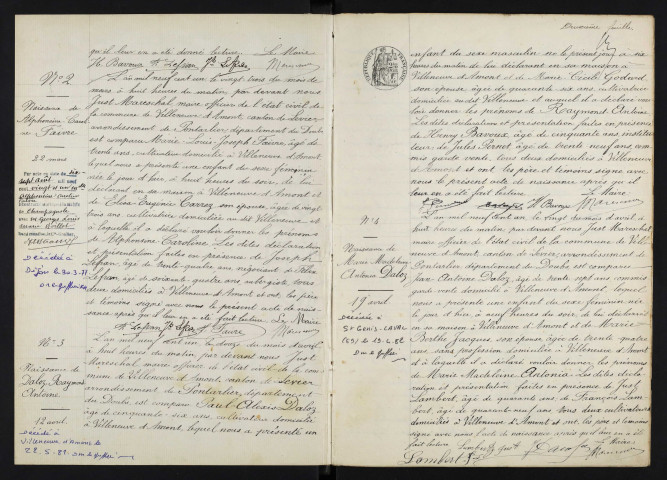 qu'il leur en a été donné lecture. Le Maire
H. Bavoux
N° 2
Naissance de
Alphonsine
Faivre
22 mars
L'an mil neuf cent un le vingt trois du mois de
mars à huit heures du matin par devant nous
Just Mareschal maire officier de l'état civil de
la commune de Villeneuve d'Amont canton de Levier
arrondissement de Pontarlier, département du Doubs
est comparu Marie Louis Joseph Faivre, âgé de
trente ans cultivateur domicilié à Villeneuve d'Amont
lequel nous a présenté une enfant du sexe féminin
née le jour d'hier, à huit heures du soir, de lui
déclarant en sa maison à Villeneuve d'Amont et de
Eugénie Carrez son épouse âgée de vingt
ans, cultivatrice domiciliée au dit Villeneuve
à laquelle il a déclaré vouloir donner les prénoms
de Alphonsine Caroline Les dites déclaration
et présentation faites en présence de Joseph
Lefran, âgé de trente quatre ans négociant
Lefran, âgé de soixante quatre ans aubergiste, tous
deux domiciliés à Villeneuve d'Amont et ont, les père
et témoins signé avec nous le présent acte de nais-
sance après qu'il leur en a été fait lecture. Le Maire
Faivre
Décédée à
Dijon
N° 3
Naissance de
Daloz Raymond
Antoine
12 avril
Décédé à
Villeneuve d'Amont le
28.5.81
L'an mil neuf cent un le douze du mois d'avril
à huit heures du matin par devant nous Just
Mareschal, maire officier de l'état civil de la com-
mune de Villeneuve d'Amont, canton de Levier
arrondissement de Pontarlier, département
du Doubs, est comparu Paul Alexis Daloz
âgé de cinquante six ans cultivateur domicilié
à Villeneuve d'Amont, lequel nous a présenté un
enfant du sexe masculin né le présent jour à six
heures du matin de lui déclarant en sa maison à
Villeneuve d'Amont et de Marie Cécile Godard
son épouse âgée de quarante six ans cultivatrice
domiciliée au dit Villeneuve et auquel il a déclaré vou-
loir donner les prénoms de Raymond Antoine
Les dites déclaration et présentation faites en présence
de Henry Bavoux, âgé de cinquante ans institu-
teur de Jules Pernet âgé de trente neuf ans com-
mis garde vente, tous deux domiciliés à Villeneuve
d'Amont et ont les père et témoins signé avec
nous le présent acte de naissance après qu'il
leur en a été fait lecture. Le Maire
H. Bavoux
N° 4
Naissance de
Marie Magdeleine
Antonia Daloz
19 avril
Décédée à
St Genis-Laval
L'an mil neuf cent un le vingt du mois d'avril à
huit heures du matin par devant nous Just Mareschal
maire officier de l'état civil de la commune de Ville-
neuve d'Amont, canton de Levier, arrondissement de
Pontarlier département du Doubs est comparu
Jean Antoine Daloz, âgé de trente sept ans commis
garde vente domicilié à Villeneuve d'Amont, lequel
nous a présenté une enfant du sexe féminin née
le jour d'hier, à neuf heures du soir, de lui déclarant
en sa maison à Villeneuve d'Amont et de Marie
Berthe Jacques son épouse, âgée de trente quatre
ans, sans profession domiciliée à Villeneuve d'Amont,
et à laquelle il a déclaré vouloir donner, les prénoms
de Marie Madeleine Antonia. Les dites décla-
ration et présentation faites en présence de Just
Lambert, âgé de quarante ans, de François Lam-
bert, âgé de quarante neuf ans tous deux cultivateurs
domiciliés à Villeneuve d'Amont et ont, les père et témoins
signé avec nous l'acte de naissance après qu'il leur en a été
fait lecture. Le Maire
Lambert